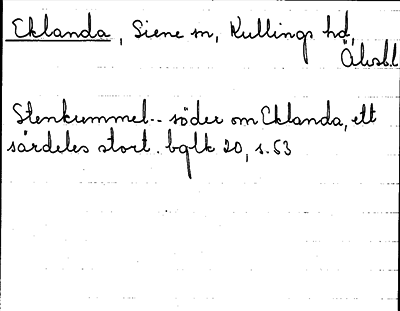 Eklanda, Siene sn, Kullings hd,
Älvsb.l
Stenkummel-- söder om Eklanda, ett
särdeles stort. bglk 20, s. 63